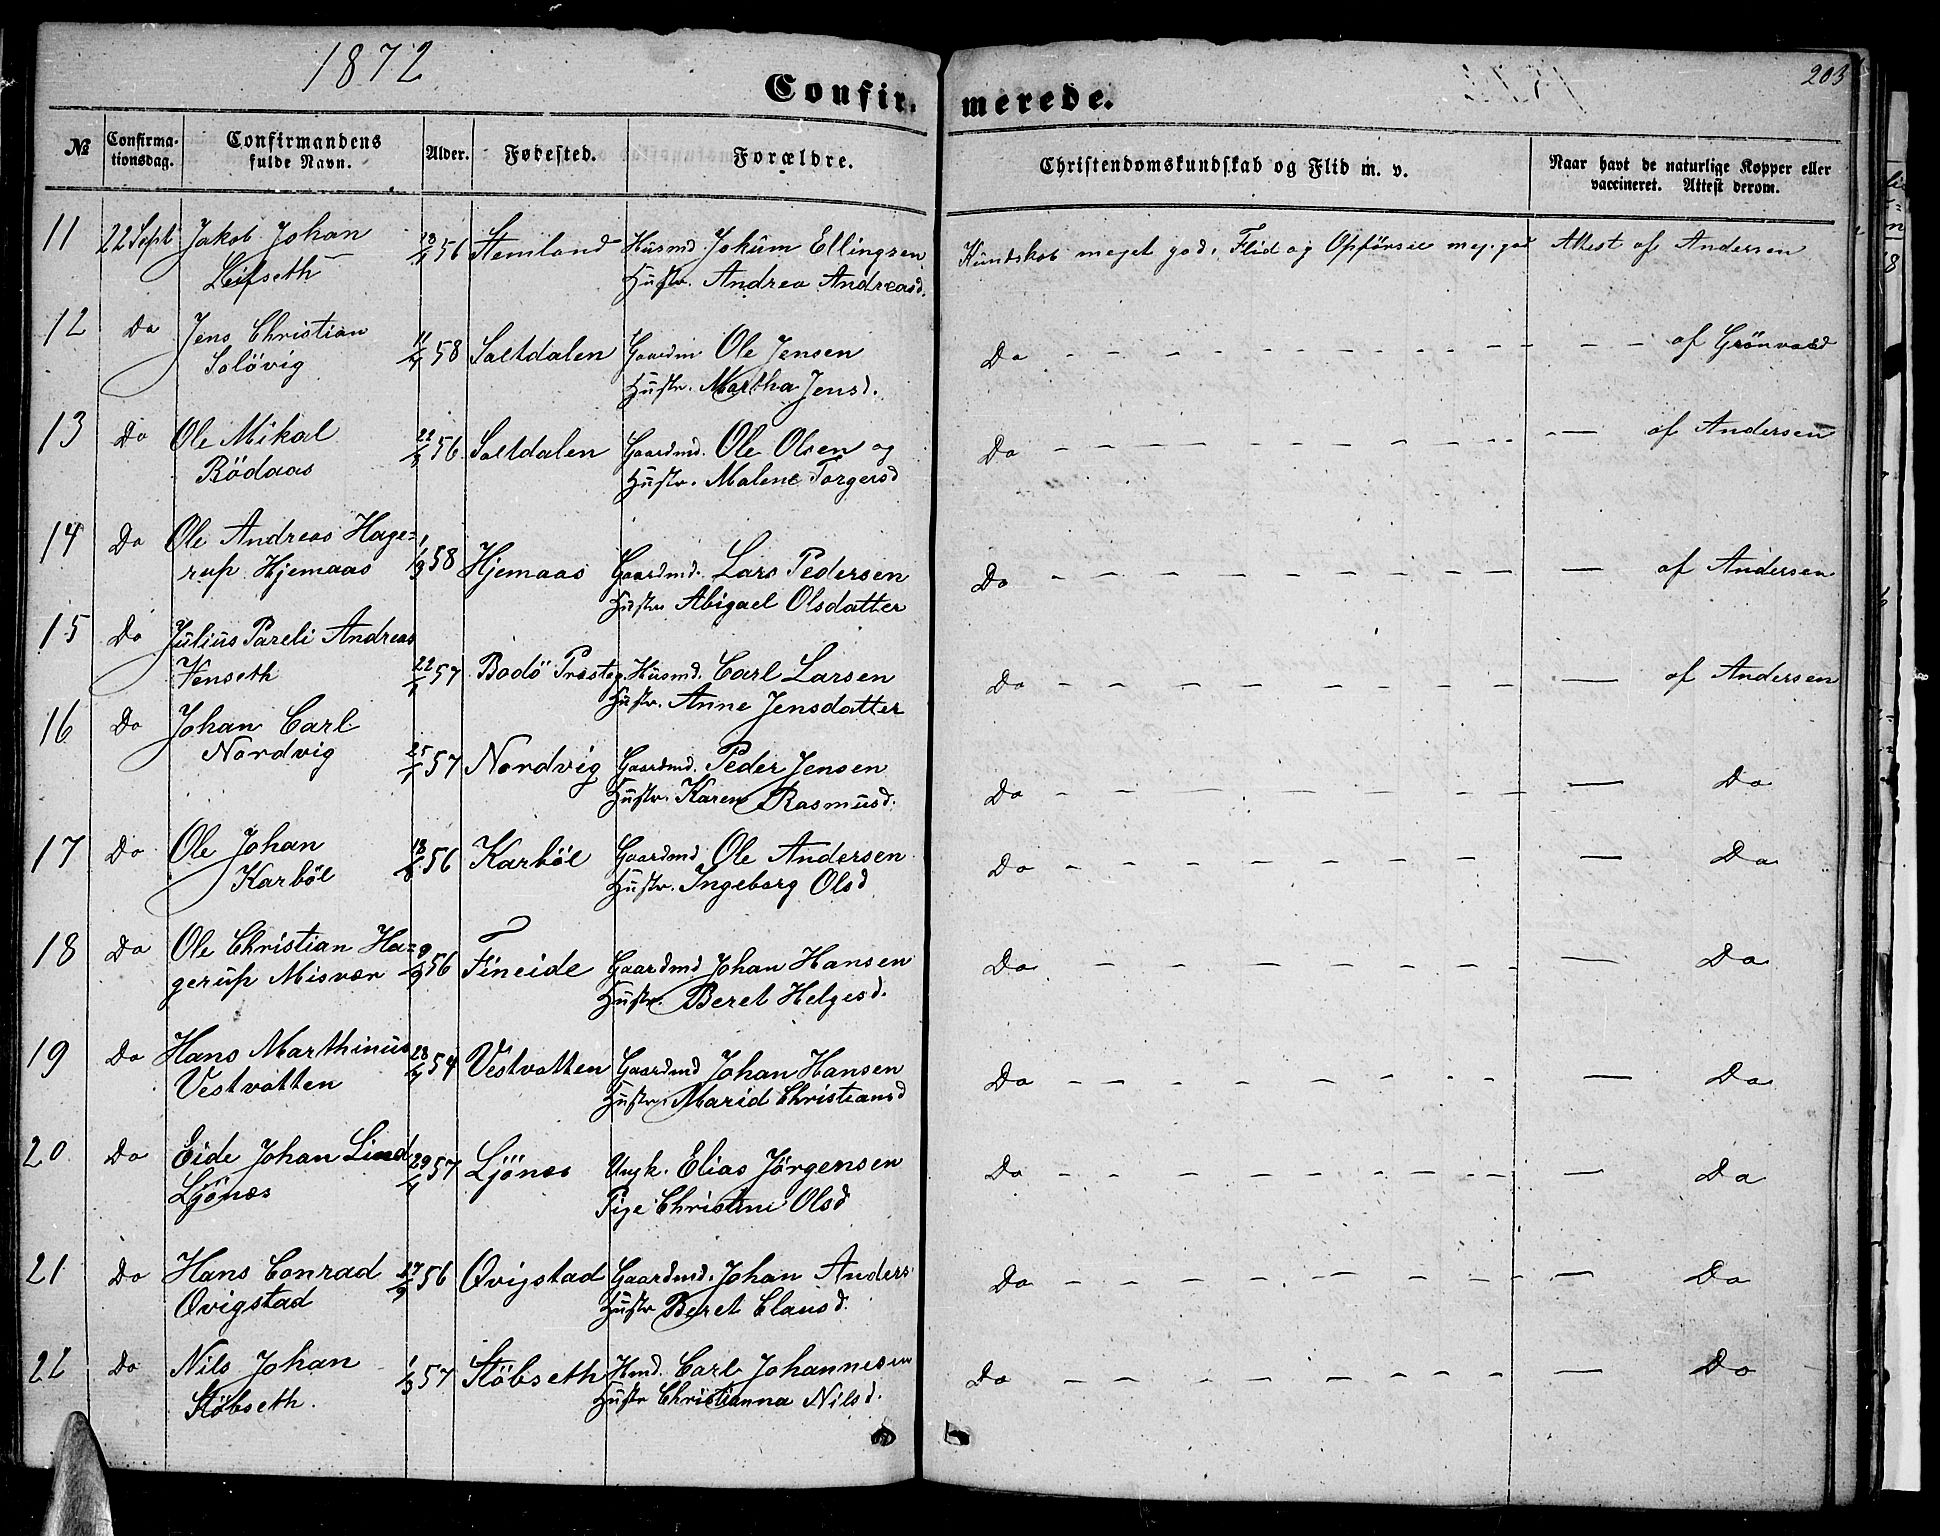 1872
203
Confir- merede.
№ Confirma- tionsdag. Confirmandens fulde Navn. Alder. Fødested. Forældre. Christendomskundskab og Flid m. v. Naar havt de naturlige Kopper eller vaccineret. Attest derom.
11 22 Sept Jakob Johan 56 Stemland Husmd Jokum Ellingsen Kundskab meget god, Flid og Opförsel meg. god Attest af Andersen
Leifseth Hustr. Andrea Andreasd.
12 Do Jens Christian 11/4 58 Saltdalen Gaardm Ole Jensen Do - - - af Grönvold
Solövig Hustr. Martha Jensd.
13 Do Ole Mikal 56 Saltdalen Gaardmd. Ole Olsen og Do - - - af Andersen
Rödaas Hustr. Malene Torgersd
14 Do Ole Andreas Hage= 1/3 58 Hjemaas Gaardmd. Lars Pedersen Do - - - af Andersen
rup Hjemaas Hustr Abigael Olsdatter
15 Do Julius Pareli Andreas
Venseth 22/1 57 Bodö Præsteg. Husmd. Carl Larsen Do - - - af Andersen
Hustr. Anne Jensdatter
16 Do Johan Carl
Nordvig 25/1 57 Nordvig Gaardmd. Peder Jensen Do - - - Do
Hustr. Karen Rasmusd.
17 Do Ole Johan 18/8 56 Karböl Gaardmd Ole Andersen Do - - - Do
Karböl Hustr. Ingeborg Olsd
18 Do Ole Christian Ha= 56 Fineide Gaardmd Johan Hansen Do - - - Do
gerup Misvær Hustr. Beret Helgesd.
19 Do Hans Marthinus 54 Vestvatten Gaardmd Johan Hansen Do - - - Do
Vestvatten Hustr. Marid Christiansd
20 Do Eide Johan Lind 29/4 57 Ljönes Ungk. Elias Jörgensen Do - - - Do
Ljönes Pige Christine Olsd
21 Do Hans Conrad 27/9 56 Qvigstad Gaardmd. Johan Anders. Do - - - Do
Qvigstad Hustr Beret Clausd.
22 Do Nils Johan 1/3 57 Stöbseth Hmd. Carl Johannesen Do - - - Do
Stöbseth. Hustr Christianna Nilsd.